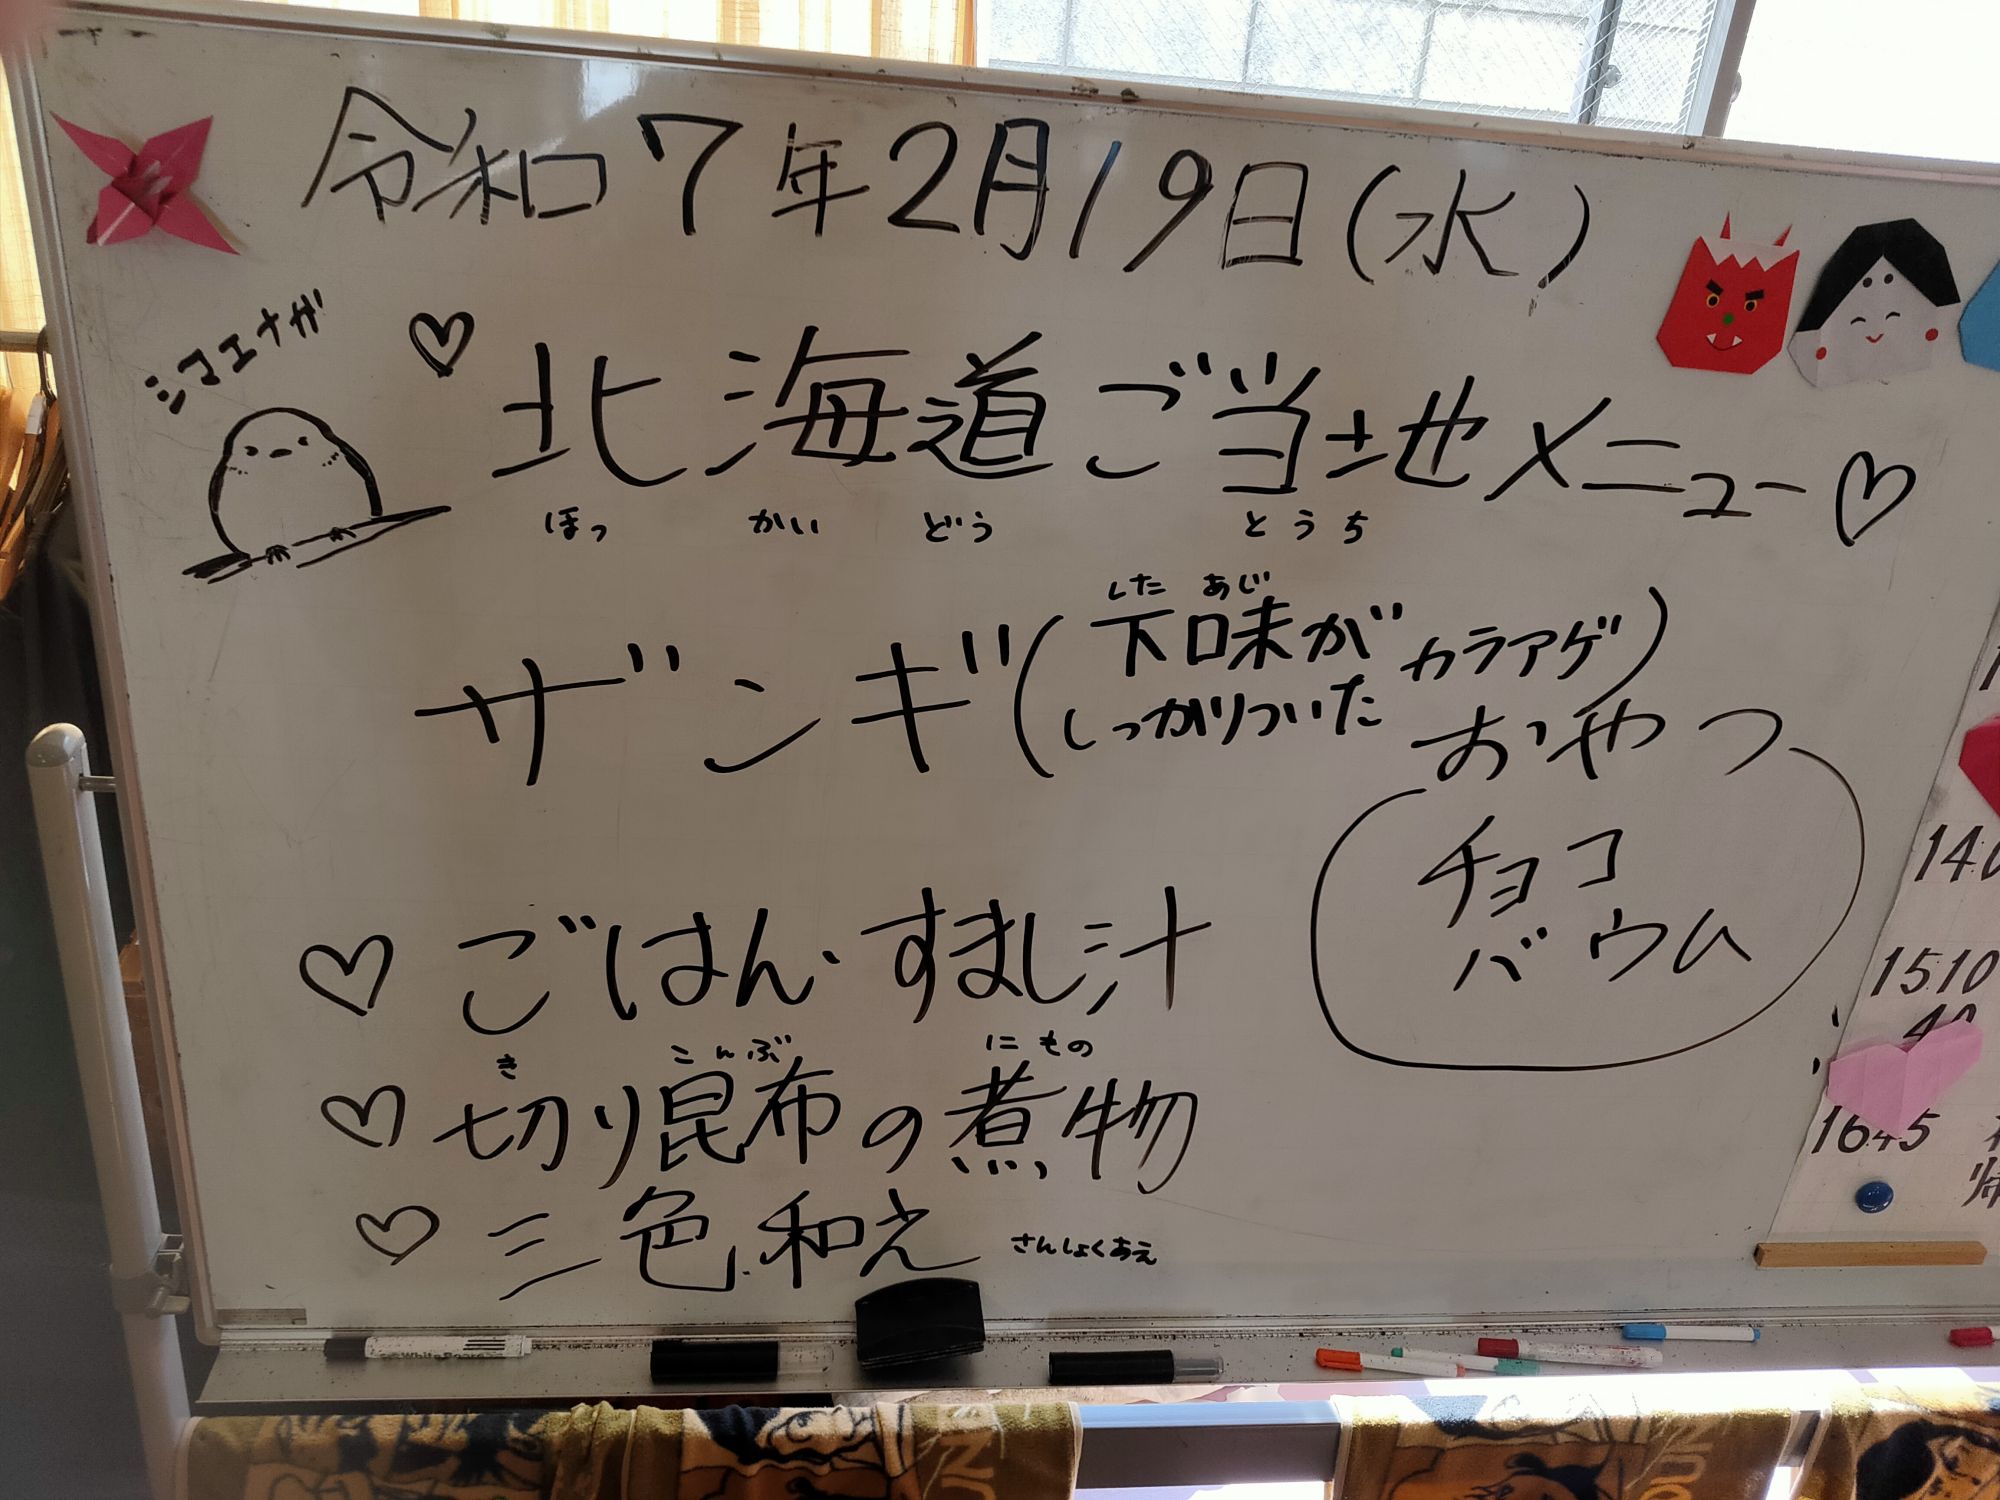 令和7年2月19日(水)
シマエナガ
北海道ご当地メニュー
ほっ かい どう とうち
した あじ
ザンギ(下味がしっかりついたカラアゲ)
おやつ
チョコ
バウム
ごはん・すまし汁
き こんぶ にもの
切り昆布の煮物
三色和え さんしょくあえ
1510
1645
WhiteBoard